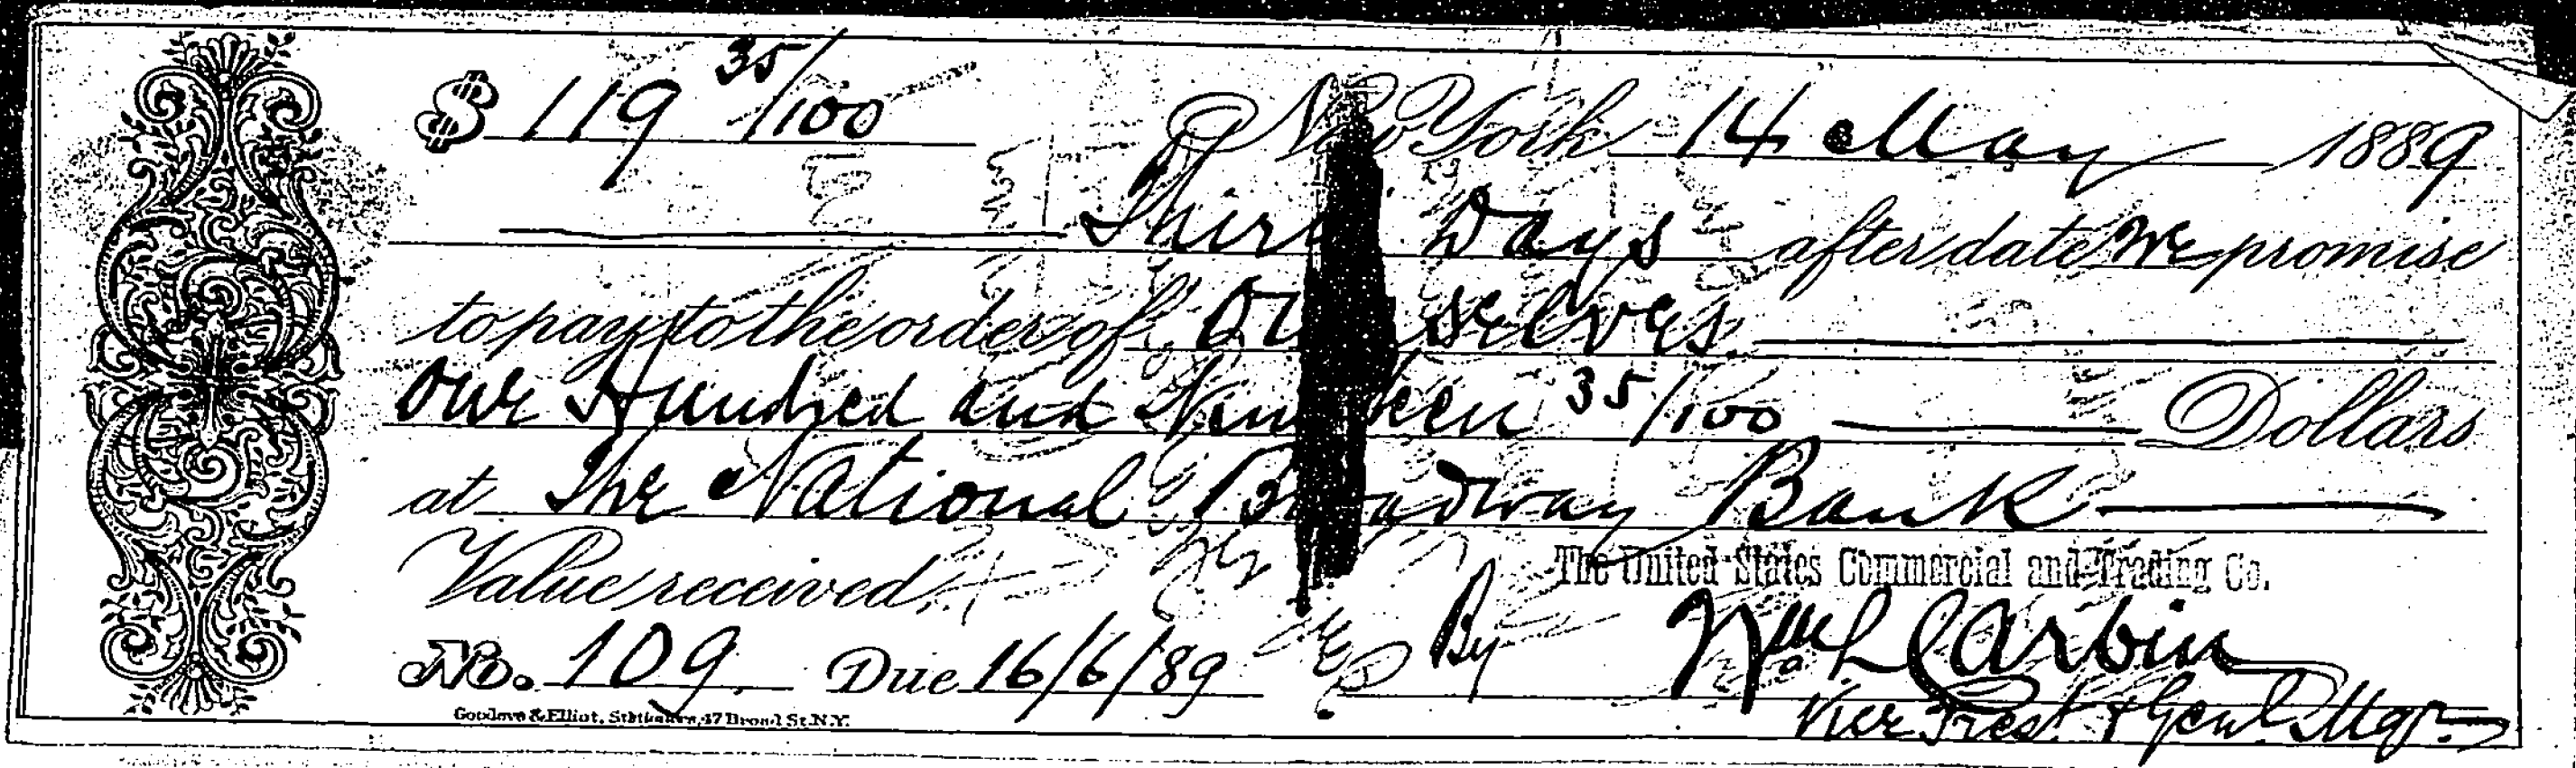 $ 119 35/100 New York 14 May 1889
Thirty Days after date We promise
to pay to the order of Ourselves
One Hundred and Nineteen 35/100 Dollars
at The National Broadway Bank
Value received,
The United States Commercial and Trading Co.
No. 109. Due 16/6/89 By Wm L Carbin
Vice Prest & Genl Mgr.
Goodove & Elliot, Stationers, 47 Broad St. N.Y.